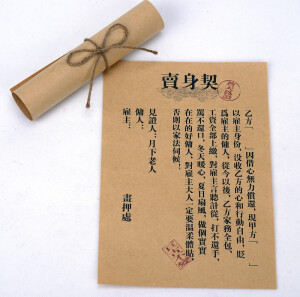 賣身契
乙方「　　」因借心無力償還，現甲方「　　」
以雇主身份，没收乙方的心和行動自由，貶
爲雇主的傭人。從今以後，乙方家務全包，
工資全部上繳，對雇主言聽計從，打不還手，
罵不還口，冬天暖心，夏日扇風，做個實實
在在的好傭人，對雇主大人一定要溫柔體貼，
否則以家法伺候！
見證人：月下老人
傭人：
雇主：
畫押處